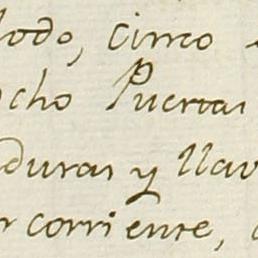 lodo, cinco
ocho Puertas
duras y llav
r corriente,